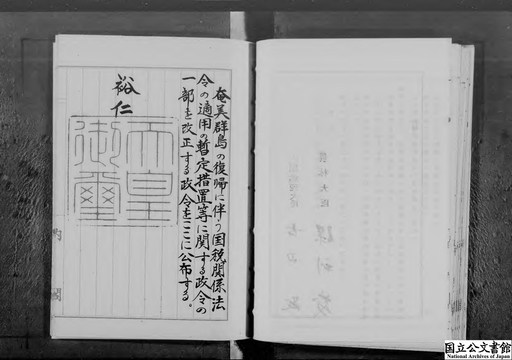 奄美群島の復帰に伴う国税関係法
令の適用の暫定措置等に関する政令の
一部を改正する政令をここに公布する。
裕仁
天皇
御璽
内閣
国立公文書館
National Archives of Japan